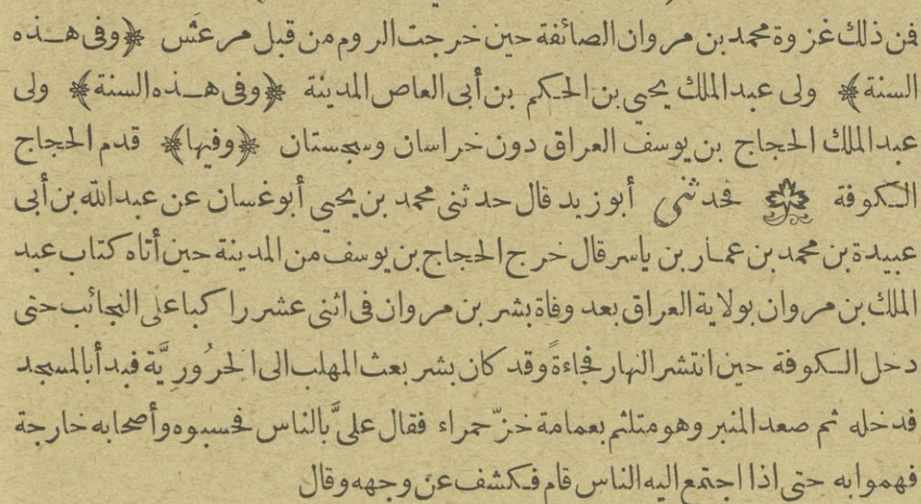 فن ذلك غزوة محمد بن مروان الصائفة حين خرجت الروم من قبل مرعش ﴿وفى هـذه
السنة﴾ ولى عبد الملك يحيى بن الحكم بن أبى العاص المدينة ﴿وفى هـذه السنة﴾ ولى
عبد الملك الحجاج بن يوسف العراق دون خراسان وسجستان ﴿وفيها﴾ قدم الحجاج
الكوفة فحدثنى أبو زيد قال حدثنى محمد بن يحيى أبو غسان عن عبد الله بن أبى
عبيدة بن محمد بن عمـار بن ياسر قال خرج الحجاج بن يوسف من المدينة حين أتاه كتاب عبد
الملك بن مروان بولاية العراق بعد وفاة بشر بن مروان فى اثنى عشر راكبا على النجائب حتى
دخل الكوفة حين انتشر النهار فجاءةً وقد كان بشر بعث المهلب الى الحَرُورِيَّة فبدأ بالمسجد
فدخله ثم صعد المنبر وهو متلثم بعمامة خزّ حمراء فقال علىَّ بالناس فحسبوه وأصحابه خارجة
فهموا به حتى اذا اجتمع اليه الناس قام فكشف عن وجهه وقال